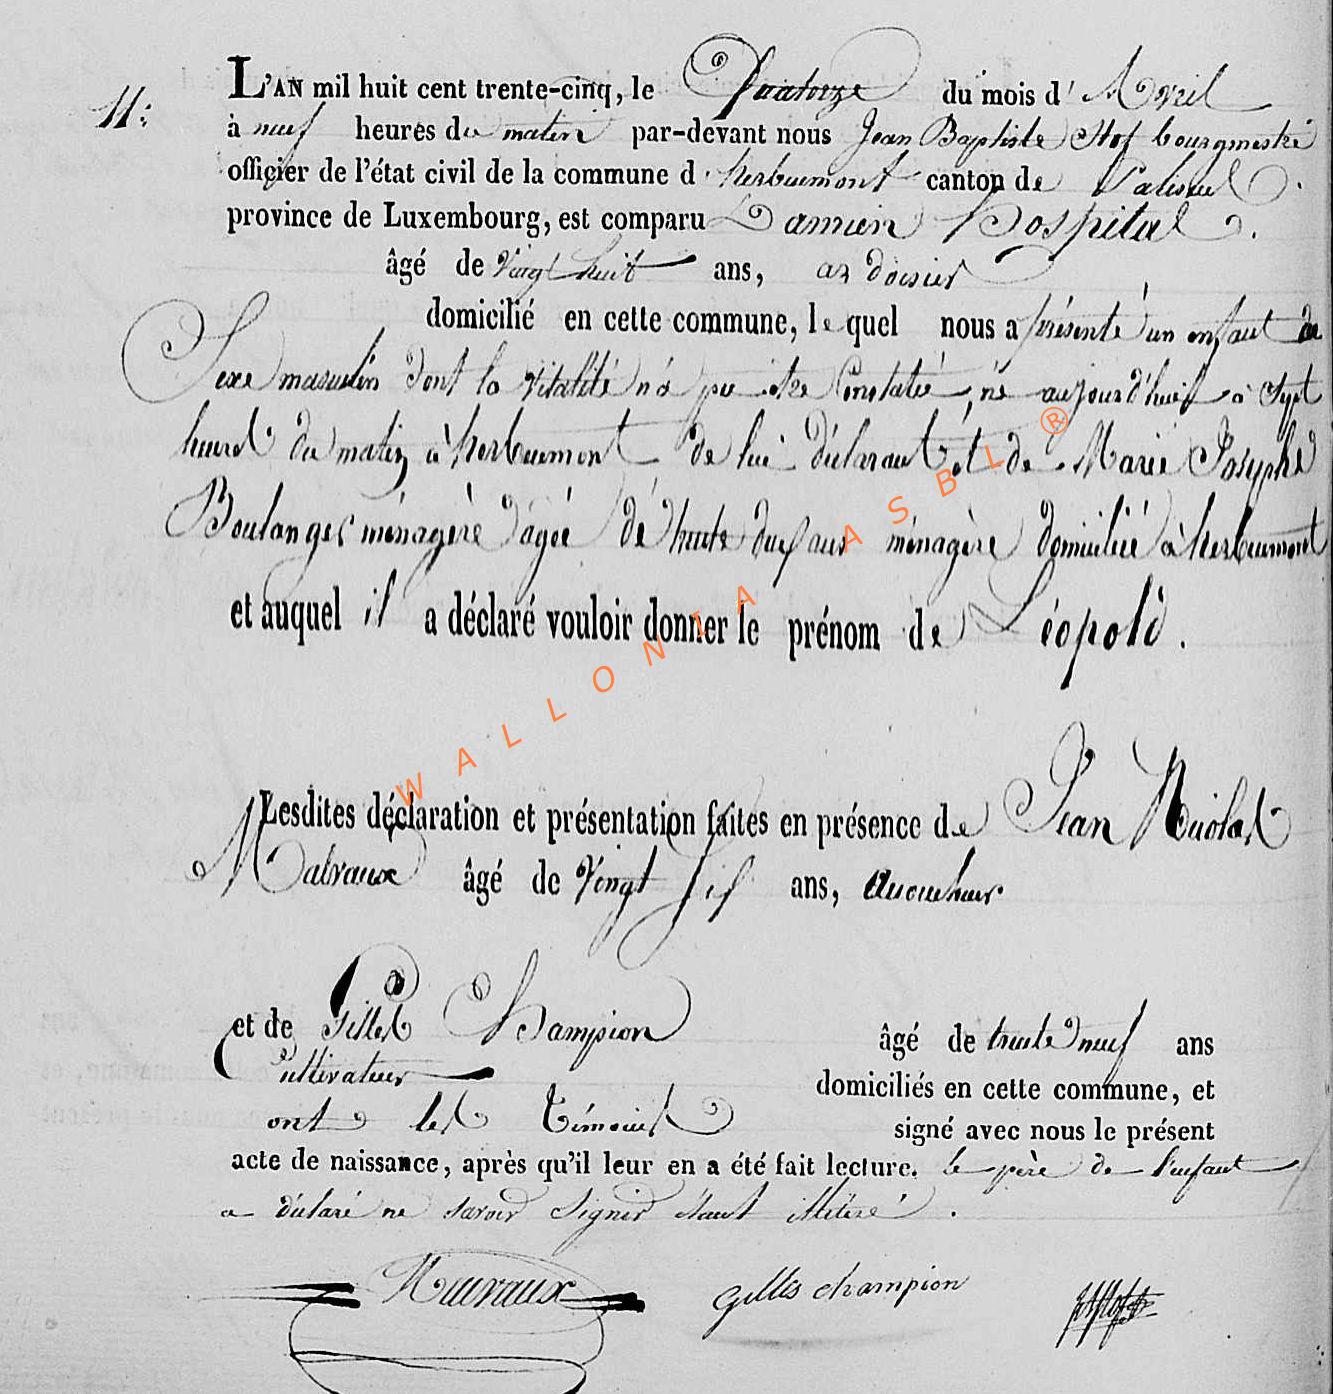 11.
L'AN mil huit cent trente-cinq, le Quatorze du mois d'Avril
à neuf heures du matin par-devant nous Jean Baptiste Stof bourgmestre
officier de l'état civil de la commune d'herbeumont canton de Paliseul
province de Luxembourg, est comparu Damien Hospital
âgé de Vingt huit ans, ardoisier
domicilié en cette commune, lequel nous a présenté un enfant du
Sexe masculin dont la vitalité n'a pu être Constatée, né aujourd'hui à Sept
heures du matin à herbeumont de lui déclarant et de Marie Josephe
Boulanger ménagère âgée de trente deux ans ménagère domicilié à herbeumont
et auquel il a déclaré vouloir donner le prénom de Léopold.
Lesdites déclaration et présentation faites en présence de Jean Nicolas
Malvaux âgé de Vingt six ans,
et de Gilles Champion âgé de trente neuf ans
Cultivateur domiciliés en cette commune, et
ont les Témoins signé avec nous le présent
acte de naissance, après qu'il leur en a été fait lecture. le père de l'enfant
a déclaré ne savoir signer étant illitéré.
gilles champion
WALLONIA ASBL ®